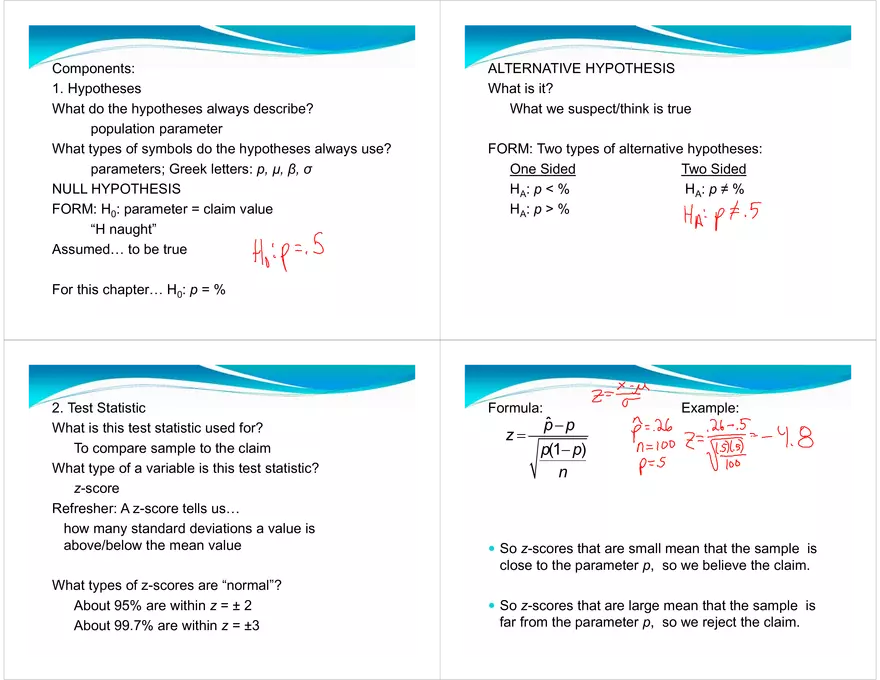 Components:
1. Hypotheses
What do the hypotheses always describe?
population parameter
What types of symbols do the hypotheses always use?
parameters; Greek letters: p, μ, β, σ
NULL HYPOTHESIS
FORM: H₀: parameter = claim value
“H naught”
Assumed… to be true
H₀: p = .5
For this chapter… H₀: p = %
ALTERNATIVE HYPOTHESIS
What is it?
What we suspect/think is true
FORM: Two types of alternative hypotheses:
One Sided Two Sided
H_A: p < % H_A: p ≠ %
H_A: p > %
H_A: p ≠ .5
2. Test Statistic
What is this test statistic used for?
To compare sample to the claim
What type of a variable is this test statistic?
z-score
Refresher: A z-score tells us…
how many standard deviations a value is
above/below the mean value
What types of z-scores are “normal”?
About 95% are within z = ± 2
About 99.7% are within z = ±3
z = (x-μ)/σ
Formula: Example:
z = (p̂ − p)/√(p(1− p)/n)
p̂ = .26
n = 100
p = .5
z = (.26 - .5)/√((.5)(.5)/100) = -4.8
• So z-scores that are small mean that the sample is
close to the parameter p, so we believe the claim.
• So z-scores that are large mean that the sample is
far from the parameter p, so we reject the claim.